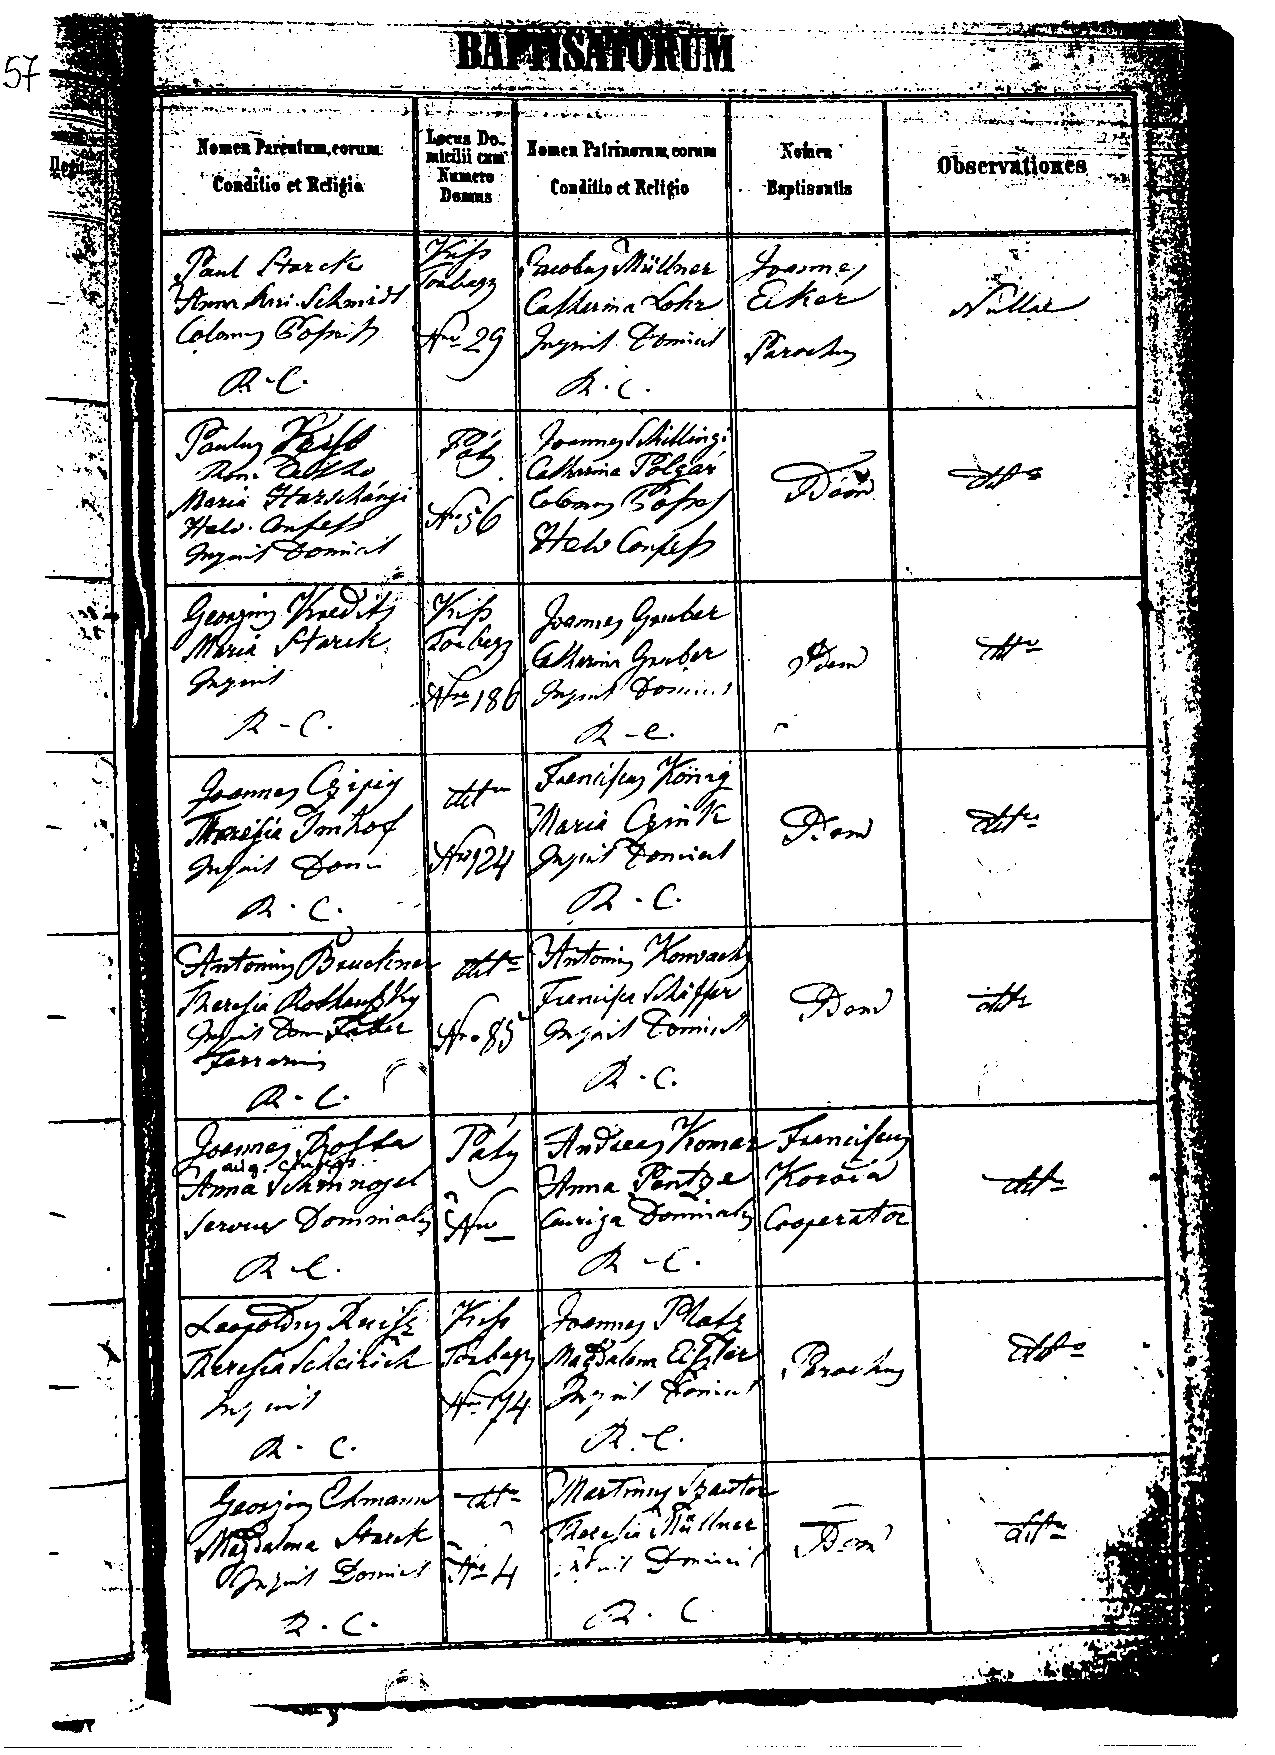 57
BAPTISATORUM
Nomen Parentum, eorum
Conditio et Religio
Locus Do-
micilii cum
Numero
Domus
Nomen Patrinorum, eorum
Conditio et Religio
Nomen
Baptisantis
Observationes
Paul Starck
Anna Mari. Schmidt
Colonus
R - C.
Kiss
Torbegy
Nro 29
Jacobus Müllner
Catharina Lohr
Inquil. Domicil
R. C.
Joannes
Eiker
Parochus
Nullae
Paulus
Maria Harschányi
Helv. Confess
Inquil Domicil
Páty
Nro 56
Joannes Schillingi
Catharina Polgár
Colonus
Helv Confess
Idem
dtto
Georgius Kreditz
Maria Starck
Inquil
R - C.
Kiss
Torbegy
Nro 186
Joannes Gruber
Catharina Gruber
Inquil Domicil
R - C.
Idem
dtto
Joannes Czipig
Theresia Imhof
Inquil Domi
R . C.
dtto
Nro 124
Franciscus König
Maria Czink
Inquil Domicil
R . C.
Idem
dtto
Antonius Bruckner
Theresia
Inquil Dom Faber
Ferrarius
R - C.
dtto
Nro 85
Antonius
Francisca Schäffer
Inquil Domicil
R . C.
Idem
dtto
Joannes
Anna
Servus Dominalis
R - C.
Páty
Nro —
Andreas Komar
Anna Pentze
Auriga Dominalis
R - C.
Franciscus
Cooperator
dtto
Leopoldus
Theresia
Inquil
R . C.
Kiss
Torbegy
Nro 174
Joannes Platz
Magdalena
Inquil Domicil
R . C.
Parochus
dtto
Georgius Ehmann
Magdalena Starck
Inquil Domicil
R . C.
dtto
Nro 4
Martinus
Theresia Müllner
Inquil Domicil
R . C.
Idem
dtto